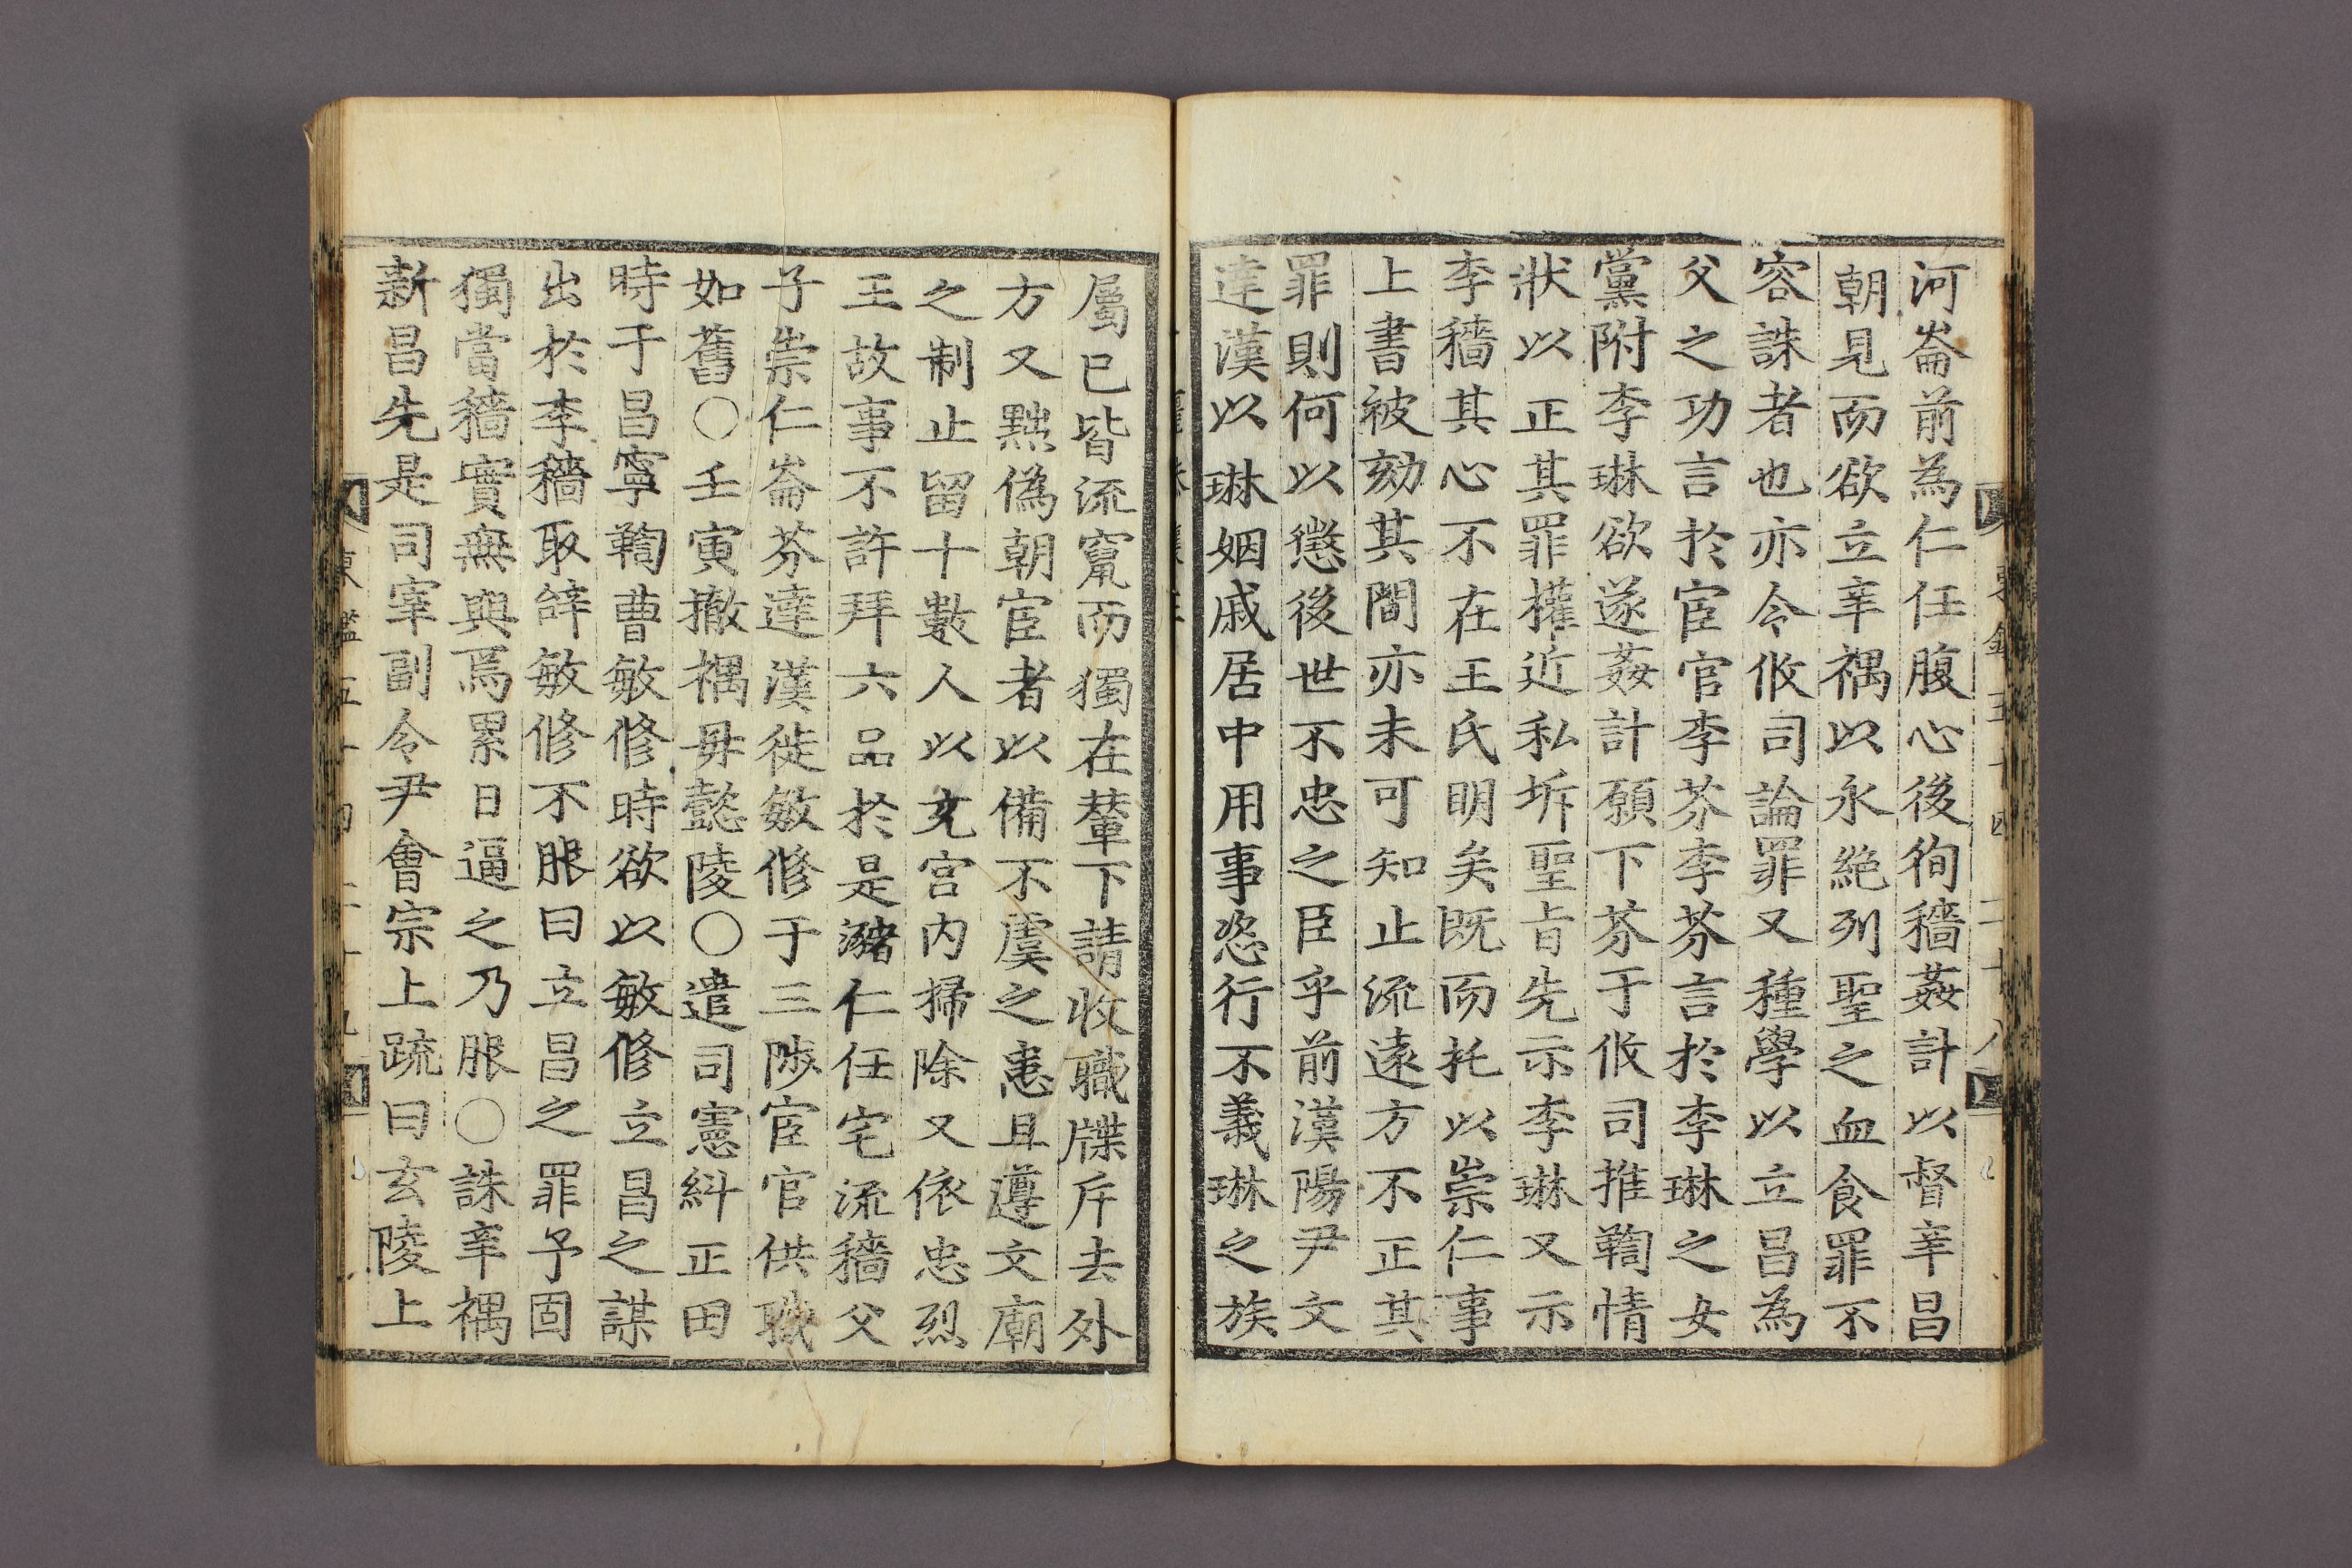 河崙前為仁任腹心後徇穡姦計以督辛昌
朝見而欲立辛禑以永絶列聖之血食罪不
容誅者也亦令攸司論罪又種學以立昌為
父之功言於宦官李芬李芬言於李琳之女
黨附李琳欲遂姦計願下芬于攸司推鞫情
狀以正其罪權近私坼聖旨先示李琳又示
李穡其心不在王氏明矣既而托以崇仁事
上書被劾其間亦未可知止流遠方不正其
罪則何以懲後世不忠之臣乎前漢陽尹文
達漢以琳姻戚居中用事恣行不義琳之族
屬已皆流竄而獨在輦下請收職牒斥去外
方又黜僞朝宦者以備不虞之患且遵文廟
之制止留十數人以充宮內掃除又依忠烈
王故事不許拜六品於是瀦仁任宅流穡父
子崇仁崙芬達漢徙敏修于三陟宦官供職
如舊○壬寅撤禑母懿陵○遣司憲糾正田
時于昌寧鞫曹敏修時欲以敏修立昌之謀
出於李穡取辭敏修不服曰立昌之罪予固
獨當穡實無與焉累日逼之乃服○誅辛禑
新昌先是司宰副令尹會宗上疏曰玄陵上
東鑑五十四 二十九